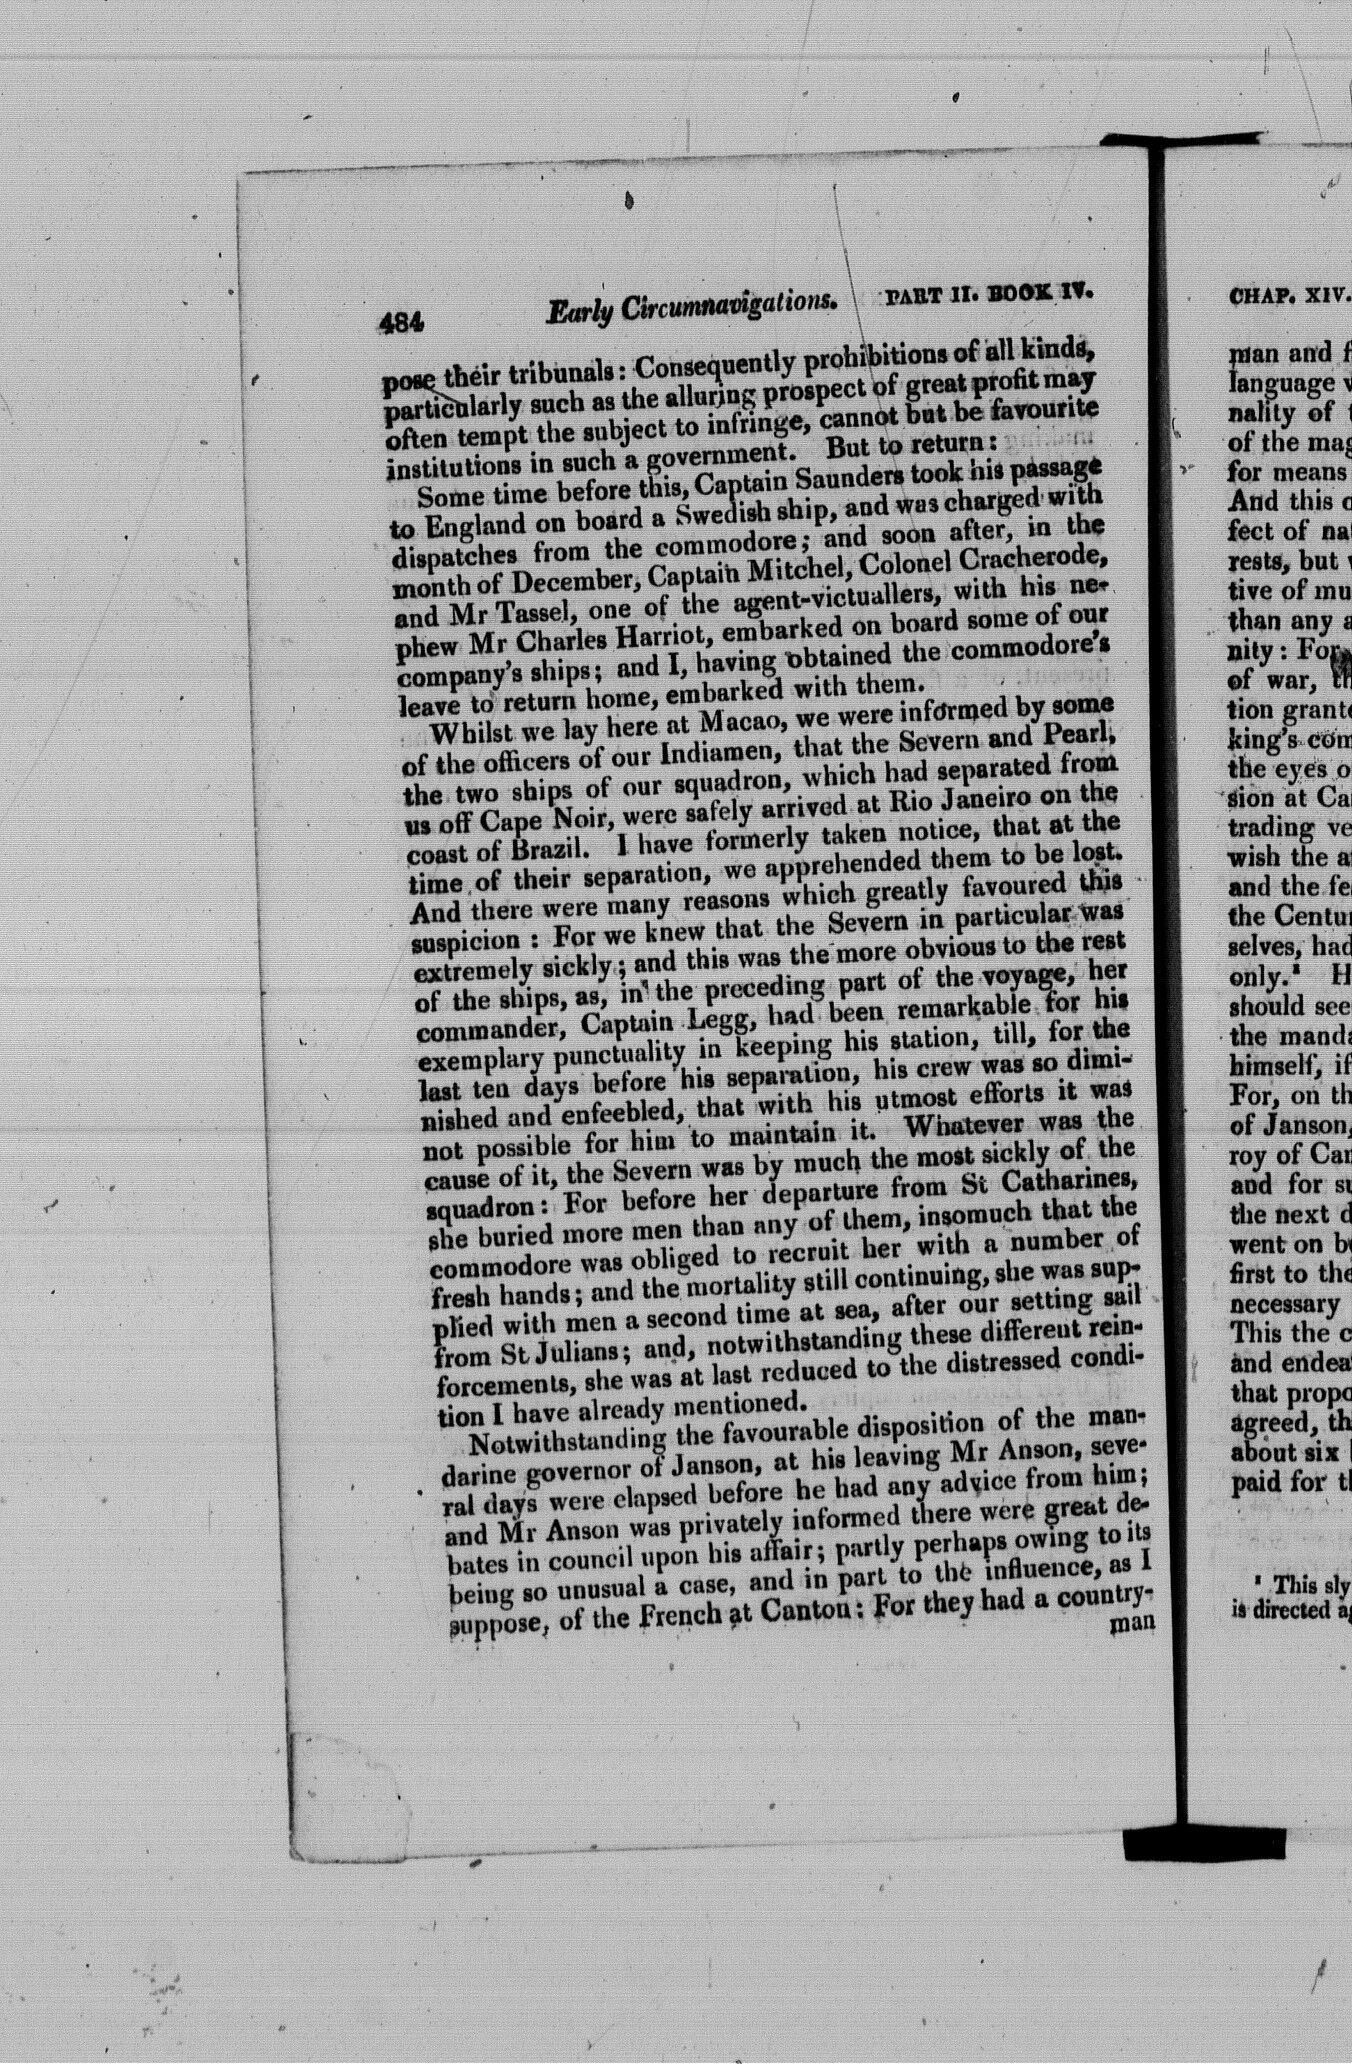 484 Early Circumnavigations. PART II. BOOK IV.
pose their tribunals: Consequently prohibitions of all kinds,
particularly such as the alluring prospect of great profit may
often tempt the subject to infringe, cannot but be favourite
institutions in such a government. But to return:
Some time before this, Captain Saunders took his passage
to England on board a Swedish ship, and was charged with
dispatches from the commodore; and soon after, in the
month of December, Captain Mitchel, Colonel Cracherode,
and Mr Tassel, one of the agent-victuallers, with his ne-
phew Mr Charles Harriot, embarked on board some of our
company's ships; and I, having obtained the commodore's
leave to return home, embarked with them.
Whilst we lay here at Macao, we were informed by some
of the officers of our Indiamen, that the Severn and Pearl,
the two ships of our squadron, which had separated from
us off Cape Noir, were safely arrived at Rio Janeiro on the
coast of Brazil. I have formerly taken notice, that at the
time of their separation, we apprehended them to be lost.
And there were many reasons which greatly favoured this
suspicion: For we knew that the Severn in particular was
extremely sickly; and this was the more obvious to the rest
of the ships, as, in the preceding part of the voyage, her
commander, Captain Legg, had been remarkable for his
exemplary punctuality in keeping his station, till, for the
last ten days before his separation, his crew was so dimi-
nished and enfeebled, that with his utmost efforts it was
not possible for him to maintain it. Whatever was the
cause of it, the Severn was by much the most sickly of the
squadron: For before her departure from St Catharines,
she buried more men than any of them, insomuch that the
commodore was obliged to recruit her with a number of
fresh hands; and the mortality still continuing, she was sup-
plied with men a second time at sea, after our setting sail
from St Julians; and, notwithstanding these different rein-
forcements, she was at last reduced to the distressed condi-
tion I have already mentioned.
Notwithstanding the favourable disposition of the man-
darine governor of Janson, at his leaving Mr Anson, seve-
ral days were elapsed before he had any advice from him;
and Mr Anson was privately informed there were great de-
bates in council upon his affair; partly perhaps owing to its
being so unusual a case, and in part to the influence, as I
suppose, of the French at Canton: For they had a country-
man
CHAP. XIV.
man and
language
nality of
of the
for means
And this
fect of
rests, but
tive of
than any
nity: For
of war,
tion
king's
the eyes
sion at
trading
wish the
and the
the
selves, had
only.¹
should see
the
himself, if
For, on
of Janson,
roy of
and for
the next
went on
first to the
necessary
This the
and
that
agreed,
about six
paid for
¹ This sly
is directed